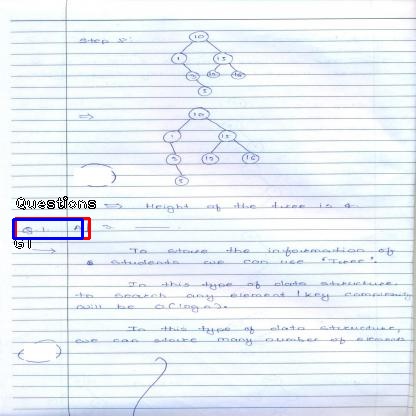 Step 5:
10
1 15
2 15 16
5
⇒
10
1 15
5 15 16
5
Questions
⇒ Height of the tree is 4.
Q.1. A ⇒
GT
To store the information of
students we can use "Tree".
In this type of data structure
to search any element / key complexity
will be O(logn).
In this type of data structure,
we can store many number of elements